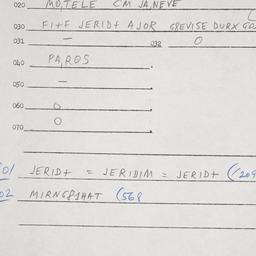 020 MO,TELE CM JA,NEVE
030 FI+F JERID+ AJOR GREVISE DURX
031 — 032 O
040 PAROS
050 —
060 O
070 O
01 JERID+ = JERIDIM = JERID+ (1209
02 MIRNGPSHAT (568